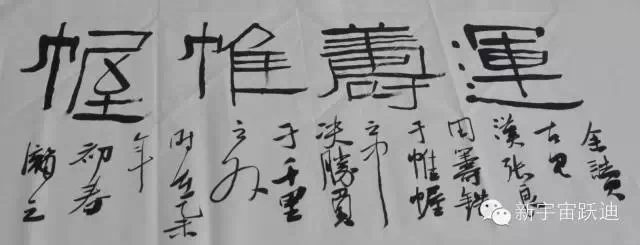 運籌帷幄
余讀
古見
漢張良
于帷幄
之中
決勝負
于千里
之外
时在乙未
年
初春
新宇宙跃迪